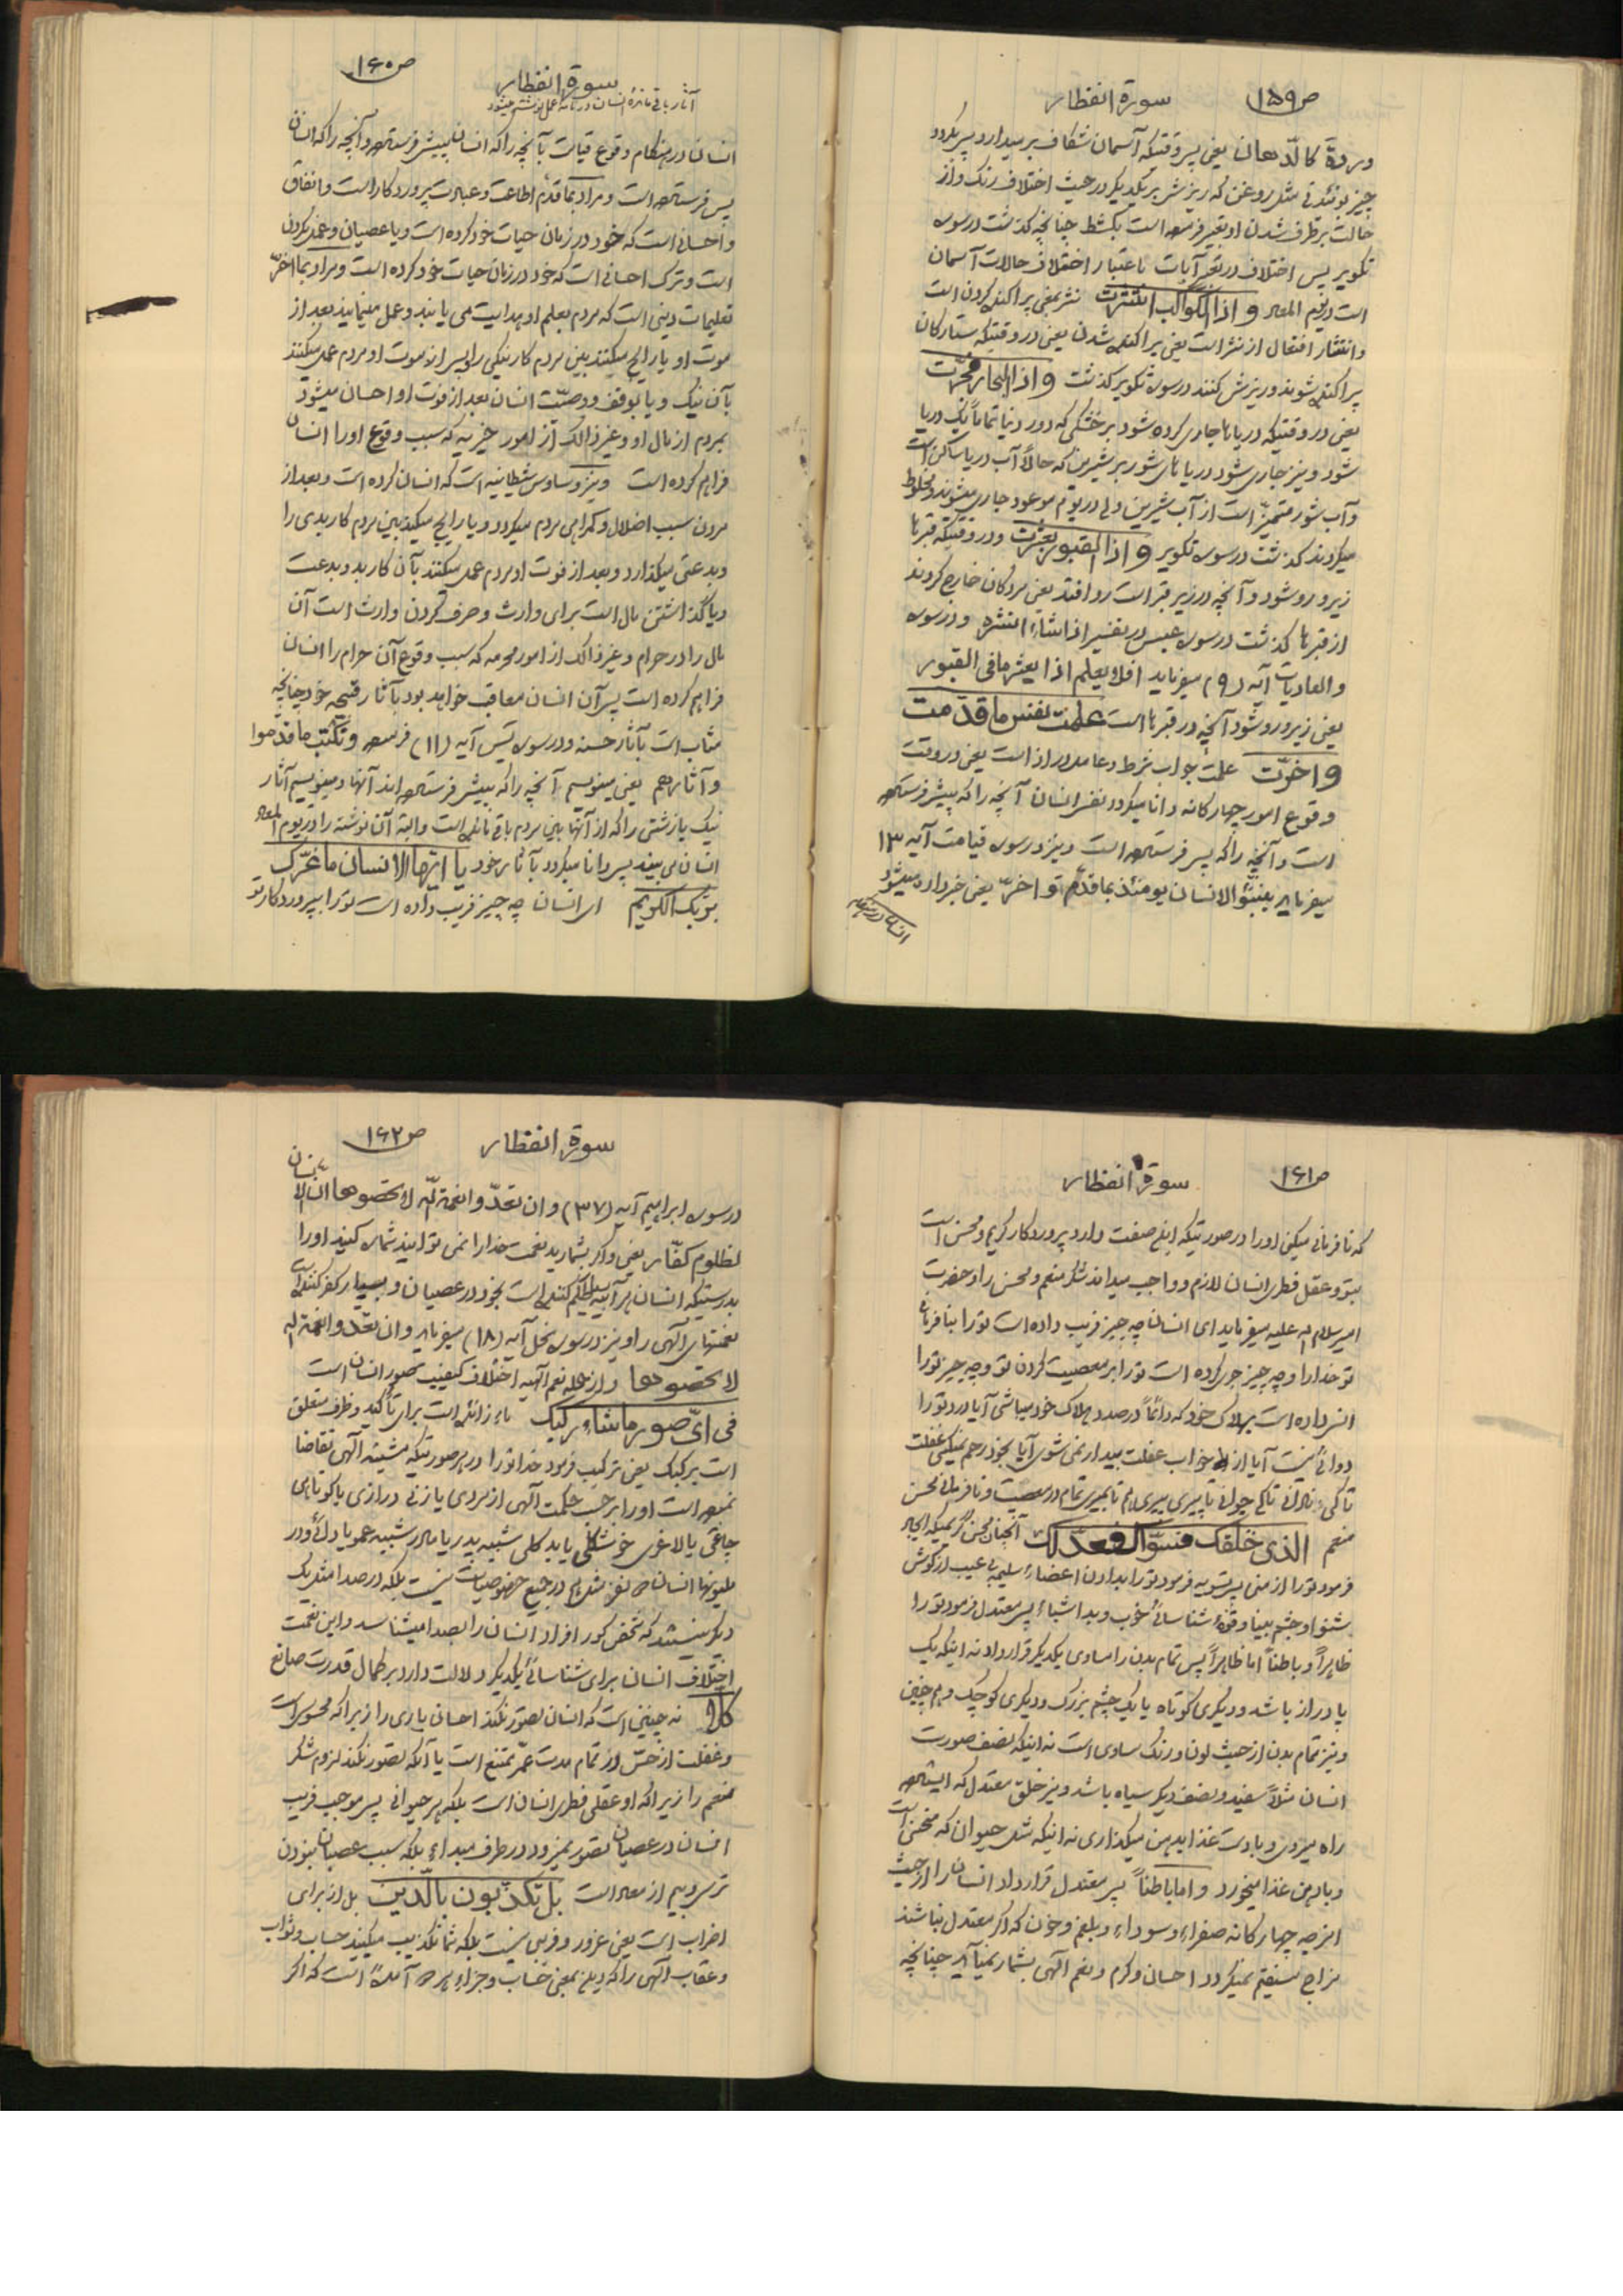 ص۱۵۹ سورة انفطار
وردة کالدّهان یعنی پس وقتیکه آسمان شکاف بر میدارد پس بگردد
چیز بوئندنی مثل روغن که ریزش بر یکدیگر در حیث اختلاف رنک و از
حالت برطرف شدن او تعبیر فرموده است بکشط چنانچه کذشت در سوره
تکویر پس اختلاف در تعبیر آیات باعتبار اختلاف حالات آسمان
است در یوم المعاد و اذا الکواکب انتثرت نثر بمعنی پراکنده کردن است
و انتثار افتعال از نثر است یعنی پراکنده شدن یعنی در وقتیکه ستارکان
پراکنده شوند و ریزش کنند در سوره تکویر کذشت و اذا البحار فجّرت
یعنی در وقتیکه دریاها جاری کرده شود بر خشکی که دور دنیا تماماً یک دریا
شود و نیز جاری شود دریاهای شور بر شیرین که حالاً آب دریا ساکن است
و آب شور متمیّز است از آب شیرین ولی در یوم موعود جاری میشوند و مخلوط
میکردند کذشت در سوره تکویر و اذا القبور بعثرت و در وقتیکه قبرها
زیر و رو شود و آنچه در زیر قبر است رو افتد یعنی مردکان خارج کردند
از قبرها کذشت در سوره عبس در تفسیر اذا شاء انشره و در سوره
والعادیات آیه (۹) میفرماید افلا یعلم اذا بعثر ما فی القبور
یعنی زیر و رو شود آنچه در قبرها است علمت نفس ما قدّمت
و اخّرت علمت جواب شرط و عامل در اذا است یعنی در وقت
وقوع امور چهارکانه دانا میکردد نفس انسان آنچه را که پیش فرستاده
است و آنچه را که پس فرستاده است و نیز در سوره قیامت آیه ۱۳
میفرماید ینبّؤ الانسان یومئذ بما قدّم و اخّر یعنی خبر داده میشود
ص۱۶۰ سورة انفطار
آثار باقی مانده انسان در نامه عمل نوشته میشود
انسان در هنکام وقوع قیامت بآنچه را که انسان پیش فرستاده و آنچه را که انسان
پس فرستاده است و مراد بما قدّم اطاعت و عبادت پروردکار است و انفاق
و احسانی است که خود در زمان حیات خود کرده است و یا عصیان و عمل نکردن
است و ترک احسانی است که خود در زمان حیات خود کرده است و مراد بما اخّر
تعلیمات دینی است که مردم بعلم او هدایت می یابند و عمل مینمایند بعد از
موت او یا رایج میکند بین مردم کار نیکی را و پس از موت او مردم عمل میکنند
بآن نیک و یا بوقف و وصیّت انسان بعد از فوت او احسان میشود
بمردم از مال او و غیر ذالک از امور خیریه که سبب وقوع او را انسان
فراهم کرده است و نیز وساوس شیطانیه است که انسان کرده است و بعد از
مردن سبب اضلال و کمراهی مردم میکردد و یا رایج میکند بین مردم کار بدی را
و بدعتی میکذارد و بعد از فوت او مردم عمل میکنند بآن کار بد و بدعت
و یا کذاشتن مال است برای وارث و صرف کردن وارث است آن
مال را در حرام و غیر ذالک از امور محرمه که سبب وقوع آن حرام را انسان
فراهم کرده است پس آن انسان معاقب خواهد بود بآثار قبیحه خود چنانچه
مثاب است بآثار حسنه و در سوره یس آیه (۱۱) فرموده و نکتب ما قدّموا
و آثارهم یعنی مینویسیم آنچه را که پیش فرستاده اند آنها و مینویسیم آثار
نیک یا زشتی را که از آنها بین مردم باقی مانده است و البته آن نوشته را در یوم المعاد
انسان می بیند پس دانا میکردد بآثار خود یا ایّها الانسان ما غرّک
بربّک الکریم ای انسان چه چیز فریب داده است تو را بپروردکار تو
ص۱۶۱ سورة انفطار
که نافرمانی میکنی او را در صورتیکه این صفت دارد پروردکار کریم و محسن است
بتو و عقل فطری انسان لازم و واجب میداند شکر منعم و محسن را و حضرت
امیر سلام الله علیه میفرماید ای انسان چه چیز فریب داده است تو را بنافرمانی
تو خدا را و چه چیز جری کرده است تو را بر معصیت کردن تو و چه چیز تو را
انس داده است بهلاک خود که دائماً در صدد هلاک خود میباشی آیا درد تو را
دوائی نیست آیا از خواب غفلت بیدار نمی شوی آیا بخود رحم نمیکنی غفلت
تا کی نادانی تا کی جوانی تا پیری پیری تا بمیری تمام در معصیت و نافرمانی محسن
منعم الذی خلقک فسوّاک فعدلک آنچنان محسن کریمیکه ایجاد
فرمود تو را از منی پس تسویه فرمود تو را بدادن اعضاء سلیم بی عیب از کوش
شنوا و چشم بینا و قوّهٔ شناسائی خوب و بد اشیاء پس معتدل فرمود تو را
ظاهراً و باطناً اما ظاهراً پس تمام بدن را مساوی یکدیکر قرار داد نه اینکه یک
پا دراز باشد و دیکری کوتاه یا یک چشم بزرک و دیکری کوچک و هم چنین
و نیز تمام بدن از حیث لون و رنک مساوی است نه اینکه نصف صورت
انسان مثلاً سفید و نصف دیکر سیاه باشد و نیز خلق معتدل که ایستاده
راه میروی و با دست غذا بدهن میکذاری نه اینکه مثل حیوان که منحنی است
و با دهن غذا میخورد و اما باطناً پس معتدل قرار داد انسان را از حیث
امزجه چهارکانه صفراء و سوداء و بلغم و خون که اکر معتدل نباشند
مزاج مستقیم نمیکردد احسان و کرم و نعم الهی بشمار نمیآید چنانچه
ص۱۶۲ سورة انفطار
در سوره ابراهیم آیه (۳۷) و ان تعدّوا نعمة الله لا تحصوها انّ الانسان
لظلوم کفّار یعنی و اکر بشمارید نعمت خدا را نمی توانید شماره کنید او را
بدرستیکه انسان هر آینه ظلم کننده است بخود در عصیان و بسیار کفر کننده است
نعمتهای الهی را و نیز در سوره نحل آیه (۱۸) میفرماید و ان تعدّوا نعمة الله
لا تحصوها و از جمله نعم الهیه اختلاف کیفیت صور انسان است
فی ایّ صورة ما شاء رکّبک ماء زائده است برای تأکید و ظرف متعلق
است برکّبک یعنی ترکیب فرمود خدا تو را در هر صورتیکه مشیت الهی تقاضا
نموده است او را بر حسب حکمت الهی از مردی یا زنی درازی یا کوتاهی
چاقی یا لاغری خوشکلی یا بد کلی شبیه پدر یا مادر شبیه عمو یا دائی و در
ملیونها انسان دو نفر مثل هم در جمیع خصوصیات نیست بلکه در صدا مثل یک
دیکر نیستند که شخص کور افراد انسان را بصدا میشناسد و این نعمت
اختلاف انسان برای شناسائی یکدیکر دلالت دارد بر کمال قدرت صانع
کلّا نه چنین است که انسان تصوّر نکند احسان باری را زیرا که محسوس است
و غفلت از حسّ در تمام مدت عمر ممتنع است یا آنکه تصور نکند لزوم شکر
منعم را زیرا که او عقلی فطری انسان است بلکه هر حیوانی پس موجب فریب
انسان در عصیان تصور نمیرود در طرف مبداء بلکه سبب عصیان نبودن
ترس و بیم از معاد است بل تکذّبون بالدّین بل از برای
اضراب است یعنی غرور و فریبی نیست بلکه شما تکذیب میکنید حساب و ثواب
و عقاب الهی را که دین بمعنی حساب و جزاء هر دو آمده است که اکر